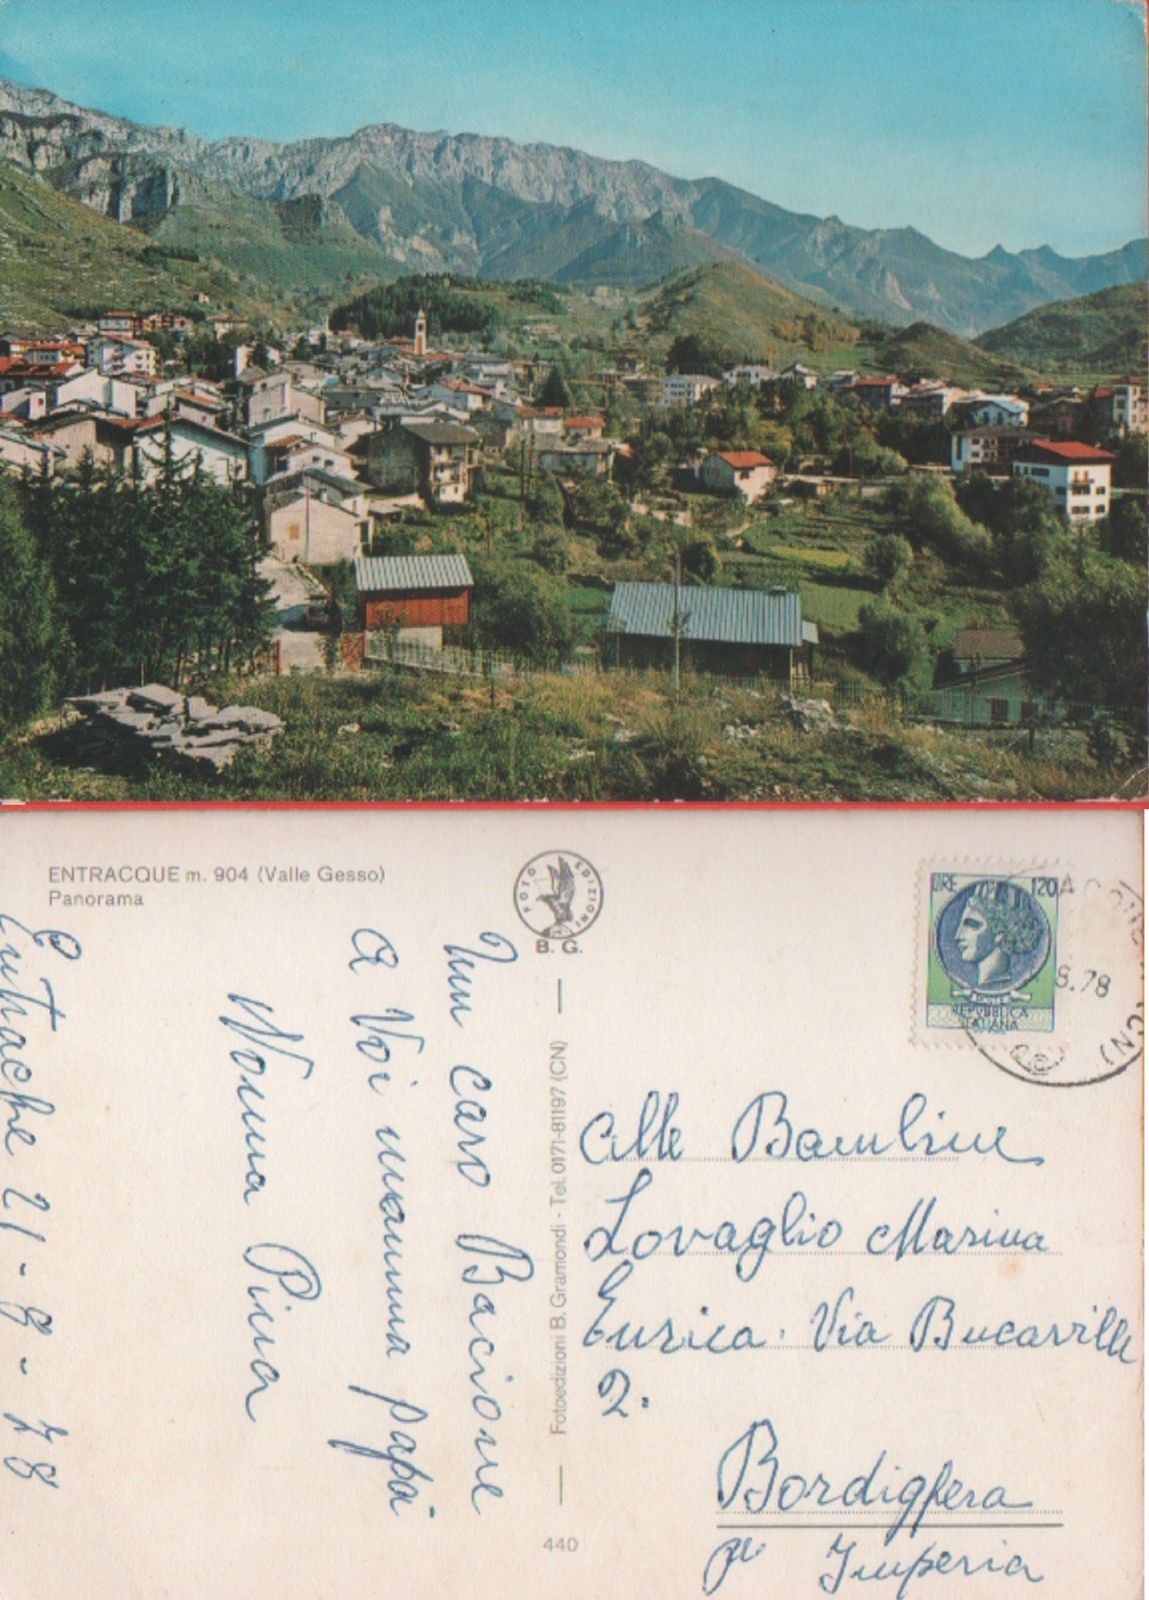 ENTRACQUE m. 904 (Valle Gesso)
Panorama
FOTO EDIZIONI
B. G.
LIRE 120
REPVBBLICA
ITALIANA
8.78
(CN)
Entracque 21-8-78
Un caro Bacione
a Voi mamma papà
Nonna Pina
Fotoedizioni B. Gramondi - Tel. 0171-81197 (CN)
440
Alle Bambine
Lovaglio Marina
Enrica. Via
2.
Bordighera
Imperia